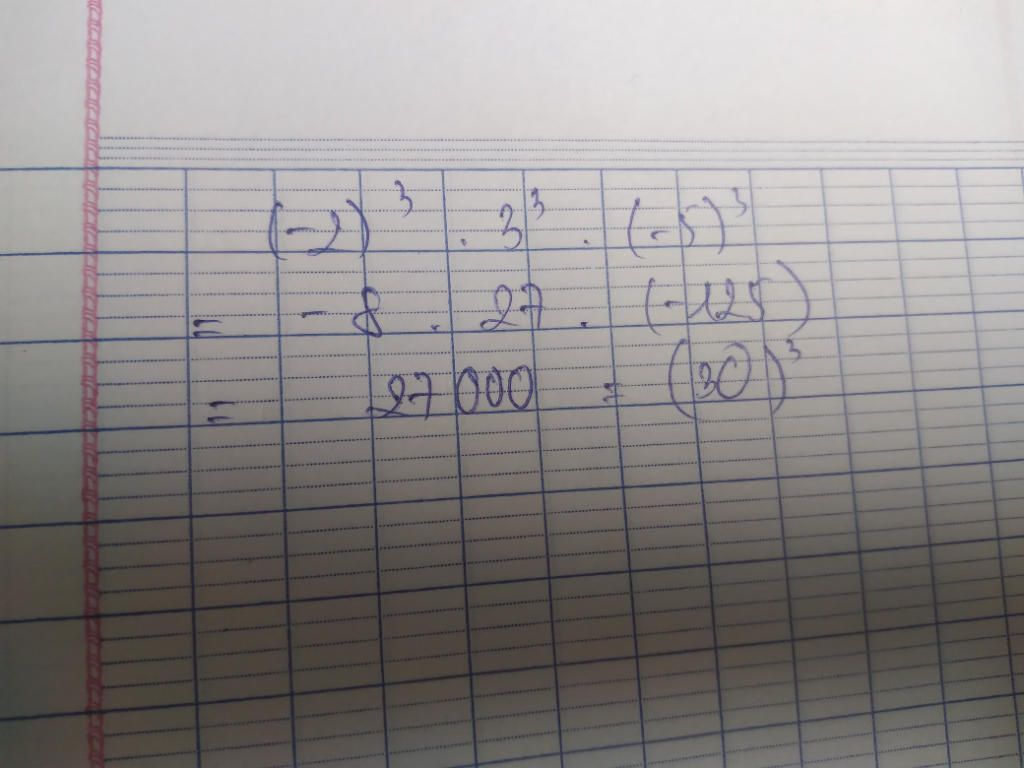 (-2)³ . 3³ . (-5)³
= -8 . 27 . (-125)
= 27 000 = (30)³